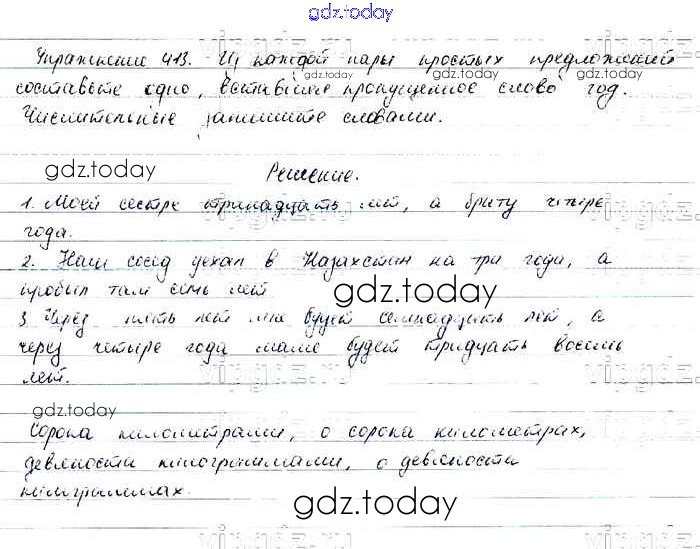 gdz.today
Упражнение 413. Из каждой пары простых предложений
gdz.today gdz.today
составьте одно, вставьте пропущенное слово год.
Числительные запишите словами.
gdz.today
Решение.
1. Моей сестре тринадцать лет, а брату четыре
года.
2. Наш сосед уехал в Казахстан на три года, а
пробыл там семь лет
gdz.today
3. Через пять лет мне будет семнадцать лет, а
через четыре года маме будет тридцать восемь
лет.
gdz.today
Сорока километрами, о сорока километрах,
девяноста килограммами, о девяноста
килограммах.
gdz.today